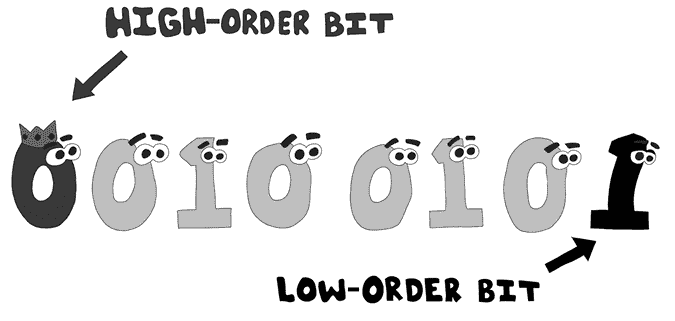 HIGH-ORDER BIT
0010 0101
LOW-ORDER BIT